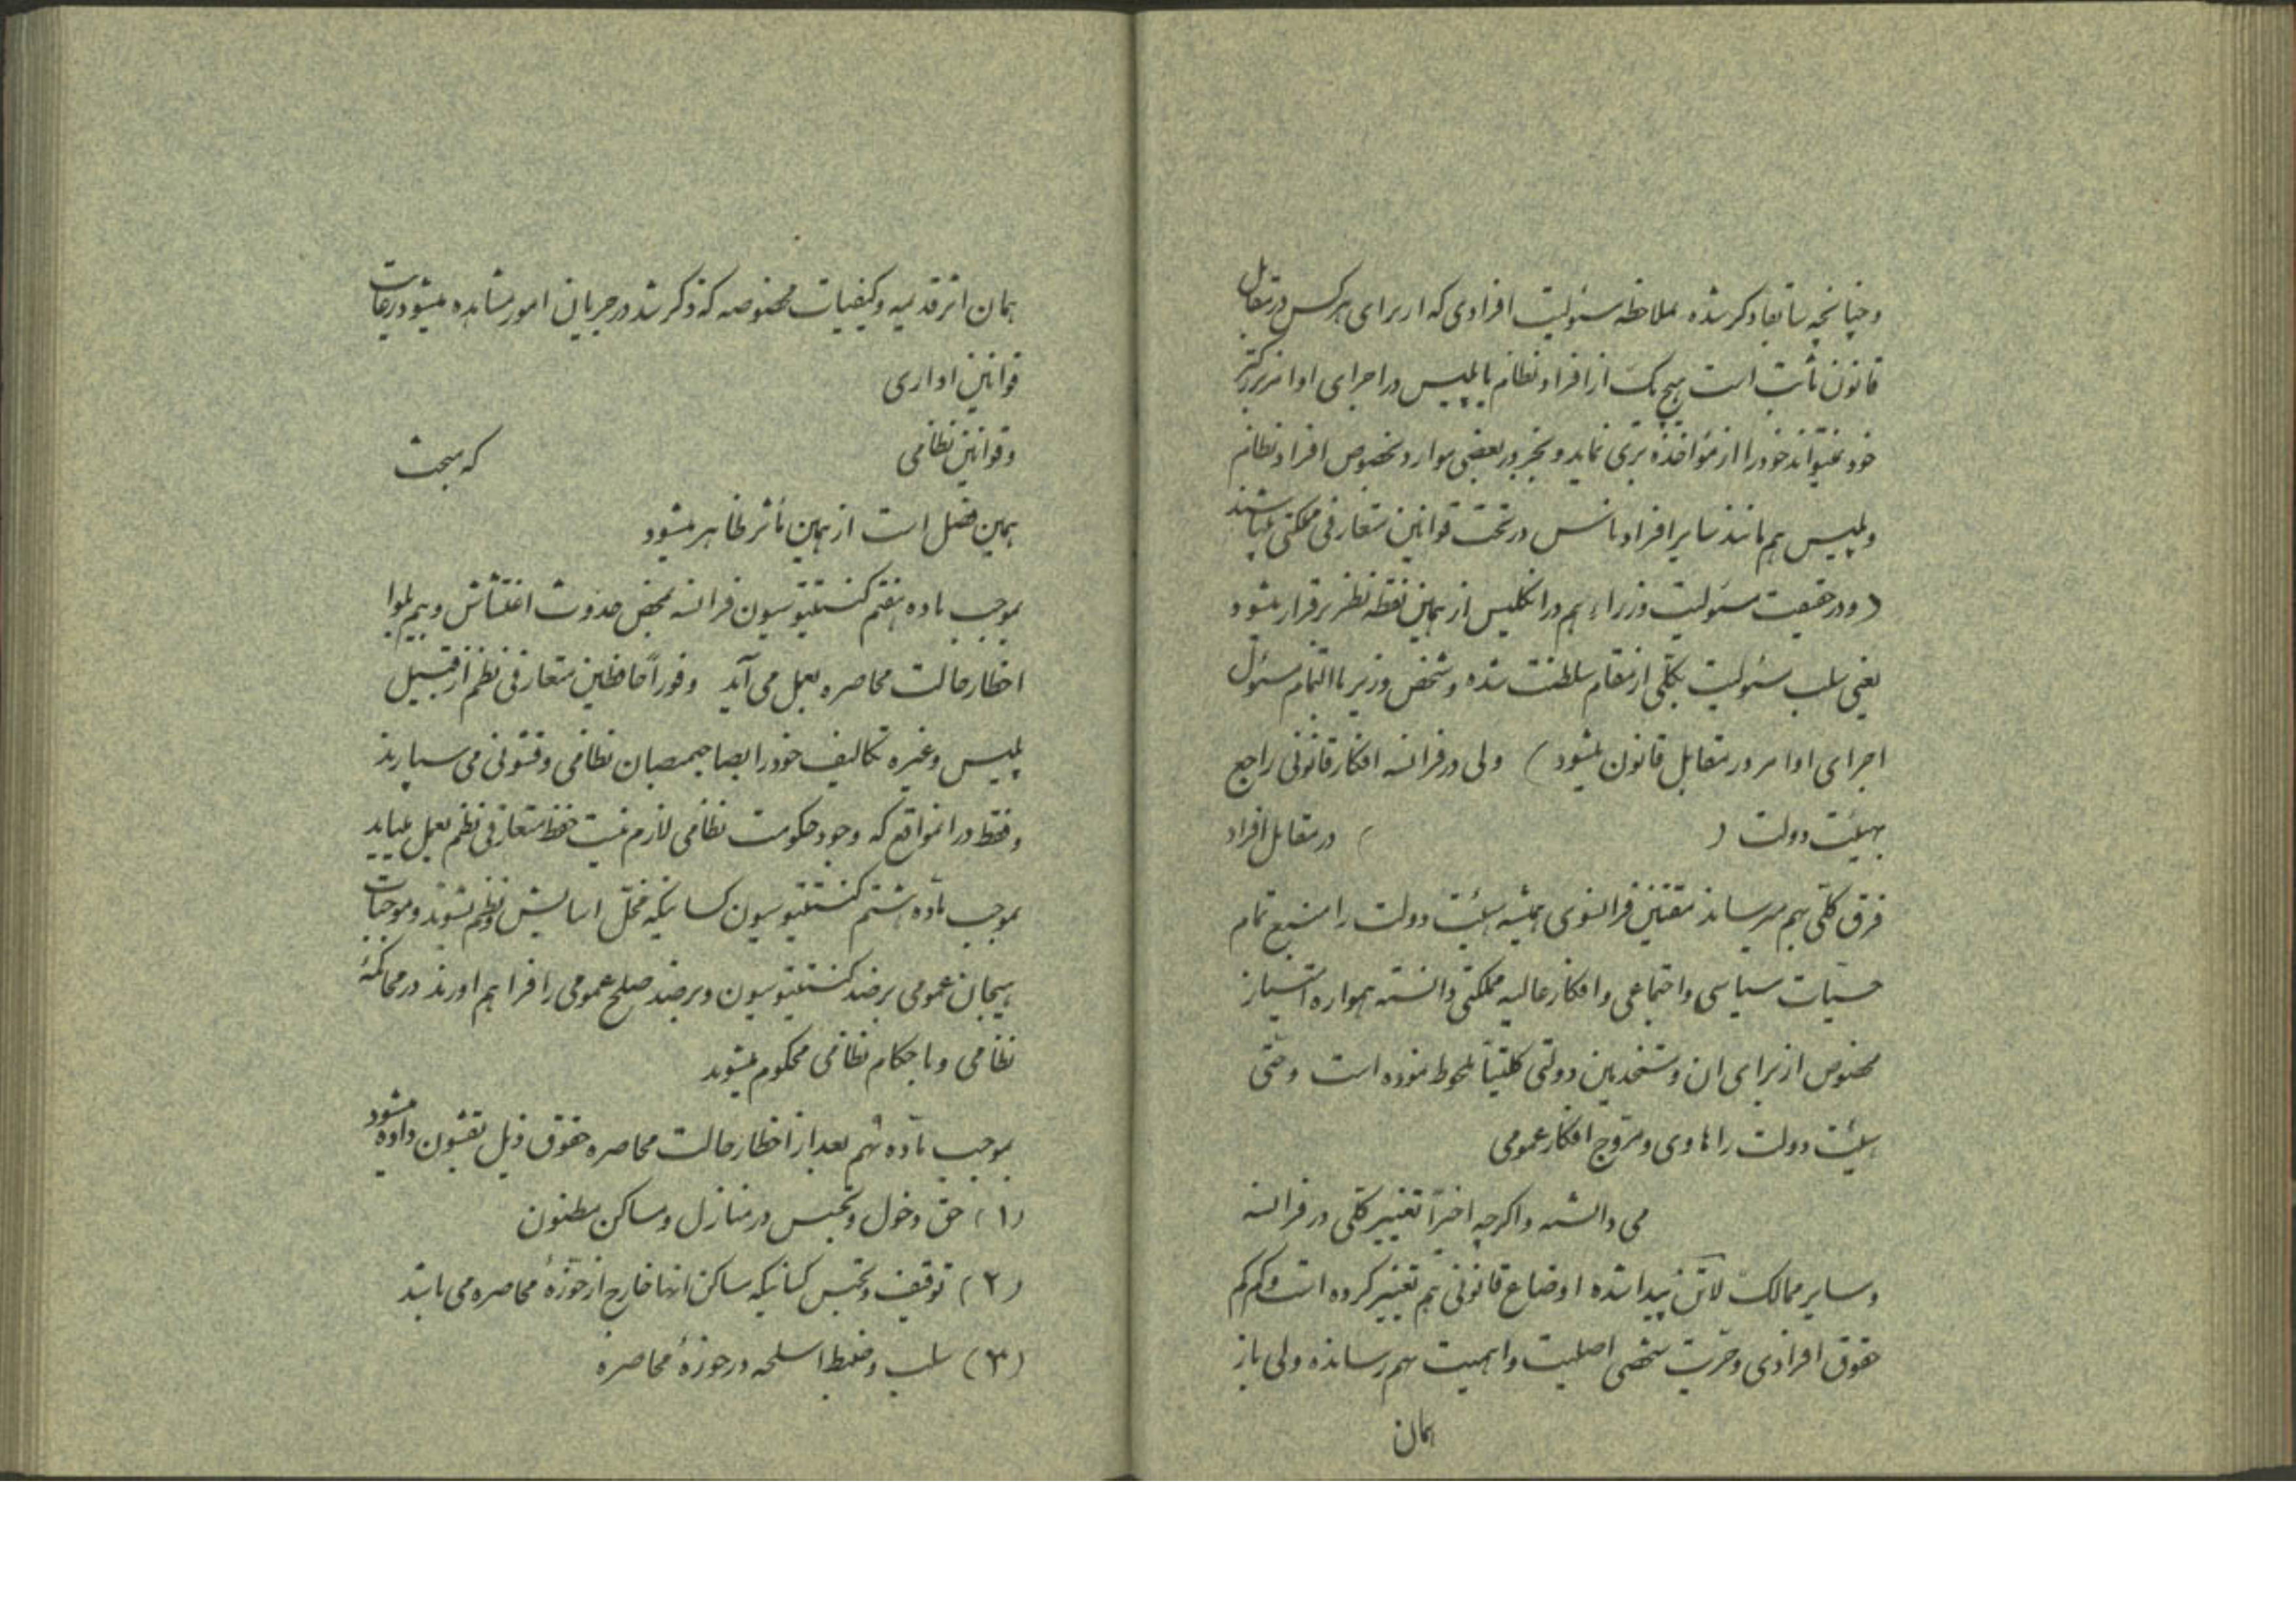 و چنانچه سابقا ذکر شده بملاحظه مسئولیت افرادی که از برای هر کس در مقابل
قانون ثابت است هیچ یک از افراد نظام یا پلیس در اجرای اوامر بزرگتر
خود نمیتواند خود را از مؤاخذه بری نماید و بجز در بعضی موارد مخصوص افراد نظام
و پلیس هم مانند سایر افراد ناس در تحت قوانین متعارفی مملکتی میباشند
(و در حقیقت مسئولیت وزراء هم در انگلیس از همین نقطه نظر برقرار میشود
یعنی سلب مسئولیت بکلی از مقام سلطنت شده و شخص وزیر بالتمام مسئول
اجرای اوامر در مقابل قانون میشود) ولی در فرانسه افکار قانونی راجع
بهیئت دولت ( ) در مقابل افراد
فرق کلی بهم میرساند مقننین فرانسوی همیشه هیئت دولت را منبع تمام
حسیات سیاسی و اجتماعی و افکار عالیه مملکتی دانسته همواره امتیاز
مخصوص از برای ان و مستخدمین دولتی کلیتاً ملحوظ نموده است و حتی
هیئت دولت را هادی و مروج افکار عمومی
می دانسته و اگرچه اخیراً تغییر کلی در فرانسه
و سایر ممالک لاتن پیدا شده اوضاع قانونی هم تغییر کرده است و کم کم
حقوق افرادی و حریت شخصی اصلیت و اهمیت بهم رسانده ولی باز
همان
همان اثر قدیمه و کیفیات مخصوصه که ذکر شد در جریان امور مشاهده میشود رعایت
قوانین اداری
و قوانین نظامی که مبحث
همین فصل است از همین تأثر ظاهر میشود
بموجب ماده هفتم کنستیتوسیون فرانسه بمحض حدوث اغتشاش و بیم بلوا
اخطار حالت محاصره بعمل می آید و فوراً محافظین متعارفی نظم از قبیل
پلیس و غیره تکالیف خود را بصاحبمنصبان نظامی و قشونی می سپارند
و فقط در انمواقع که وجود حکومت نظامی لازم نیست حفظ متعارفی نظم بعمل میاید
بموجب ماده هشتم کنستیتوسیون کسانیکه مخل اسایش و نظم بشوند و موجبات
هیجان عمومی بر ضد کنستیتوسیون و بر ضد صلح عمومی را فراهم اورند در محاکمهٔ
نظامی و باحکام نظامی محکوم میشوند
بموجب ماده نهم بعد از اخطار حالت محاصره حقوق ذیل بقشون داده میشود
(۱) حق دخول و تجسس در منازل و مساکن مظنون
(۲) توقیف و حبس کسانیکه مساکن انها خارج از حوزهٔ محاصره می باشد
(۳) سلب و ضبط اسلحه در حوزهٔ محاصره